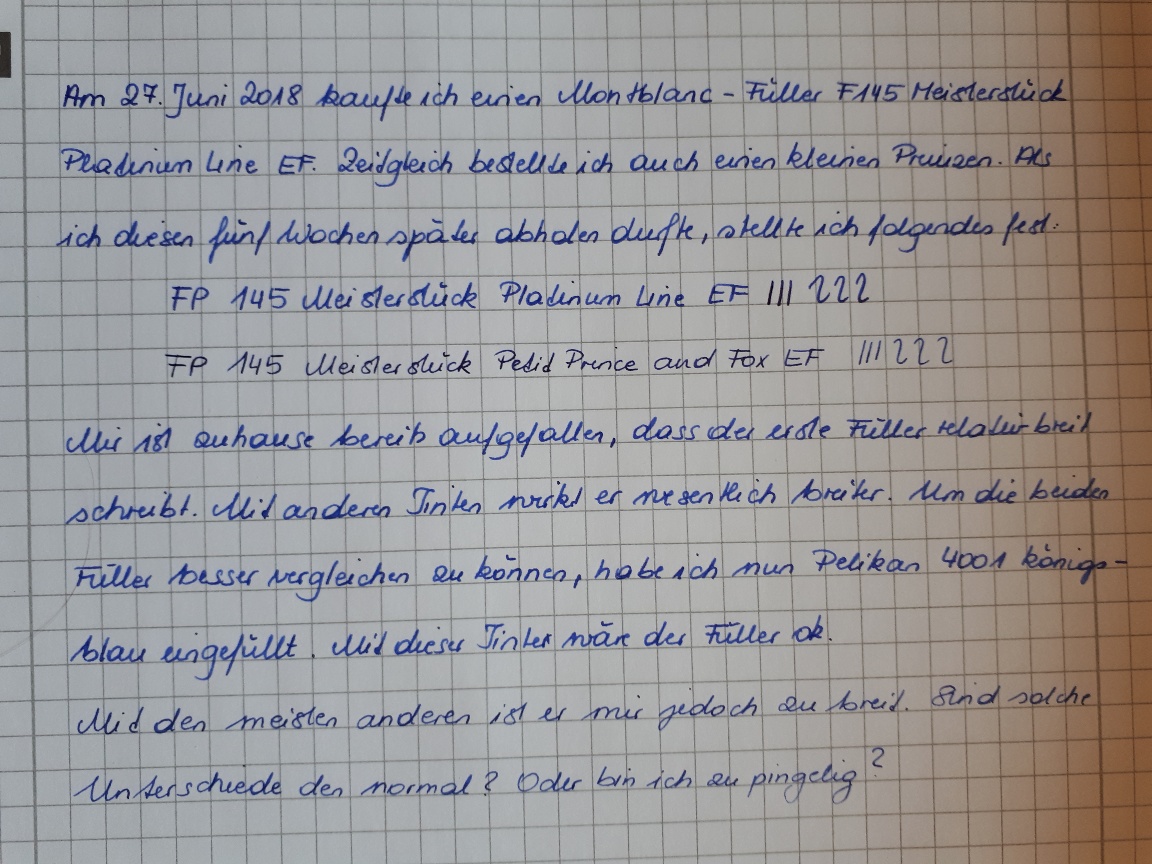 Am 27. Juni 2018 kaufte ich einen Montblanc - Füller F145 Meisterstück
Platinum Line EF. Zeitgleich bestellte ich auch einen kleinen Prinzen. Als
ich diesen fünf Wochen später abholen dufte, stellte ich folgendes fest:
FP 145 Meisterstück Platinum Line EF III 222
FP 145 Meisterstück Petit Prince and Fox EF III 222
Mir ist zuhause bereits aufgefallen, dass der erste Füller relativ breit
schreibt. Mit anderen Tinten wirkt er wesentlich breiter. Um die beiden
Füller besser vergleichen zu können, habe ich nun Pelikan 4001 königs-
blau eingefüllt. Mit dieser Tinter wäre der Füller ok.
Mit den meisten anderen ist er mir jedoch zu breit. Sind solche
Unterschiede den normal? Oder bin ich zu pingelig?